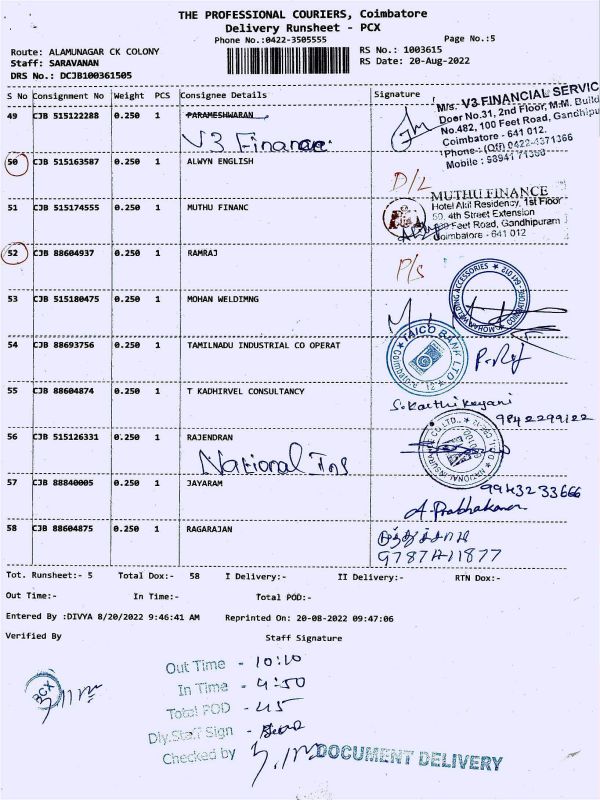 THE PROFESSIONAL COURIERS, Coimbatore
Delivery Runsheet - PCX
Phone No.:0422-3505555
Page No.:5
Route: ALAMUNAGAR CK COLONY
RS No.: 1003615
Staff: SARAVANAN
RS Date: 20-Aug-2022
DRS No.: DCJB100361505
S No Consignment No Weight PCS Consignee Details Signature
49 CJB 515122288 0.250 1 PARAMESHWARAN
V3 Finance
M/s. V3 FINANCIAL SERVIC
Door No.31, 2nd Floor, M.M. Build
No.482, 100 Feet Road, Gandhipu
Coimbatore - 641 012.
Phone : (Off) 0422-4371366
Mobile :
50 CJB 515163587 0.250 1 ALWYN ENGLISH
D/L
51 CJB 515174555 0.250 1 MUTHU FINANC
MUTHU FINANCE
Hotel Alif Residency, 1st Floor
50, 4th Street Extension
Feet Road, Gandhipuram
Coimbatore - 641 012
52 CJB 88604937 0.250 1 RAMRAJ
P/s
53 CJB 515180475 0.250 1 MOHAN WELDIMNG
MOHAN WELDING ACCESSORIES ★ COIMBATORE-641 012
54 CJB 88693756 0.250 1 TAMILNADU INDUSTRIAL CO OPERAT
TAICO BANK LTD
Coimbatore-12
55 CJB 88604874 0.250 1 T KADHIRVEL CONSULTANCY
S.Karthikeyani
9842299122
56 CJB 515126331 0.250 1 RAJENDRAN
National Ins
NATIONAL INSURANCE CO LTD.
57 CJB 88840005 0.250 1 JAYARAM
9943233666
A.Prabhakaran
58 CJB 88604875 0.250 1 RAGARAJAN
Tot. Runsheet:- 5 Total Dox:- 58 I Delivery:- II Delivery:- RTN Dox:-
Out Time:- In Time:- Total POD:-
Entered By :DIVYA 8/20/2022 9:46:41 AM Reprinted On: 20-08-2022 09:47:06
Verified By Staff Signature
PCX
Out Time - 10:10
In Time - 4:50
Total POD - 45
Dly.Staff Sign -
Checked by
DOCUMENT DELIVERY